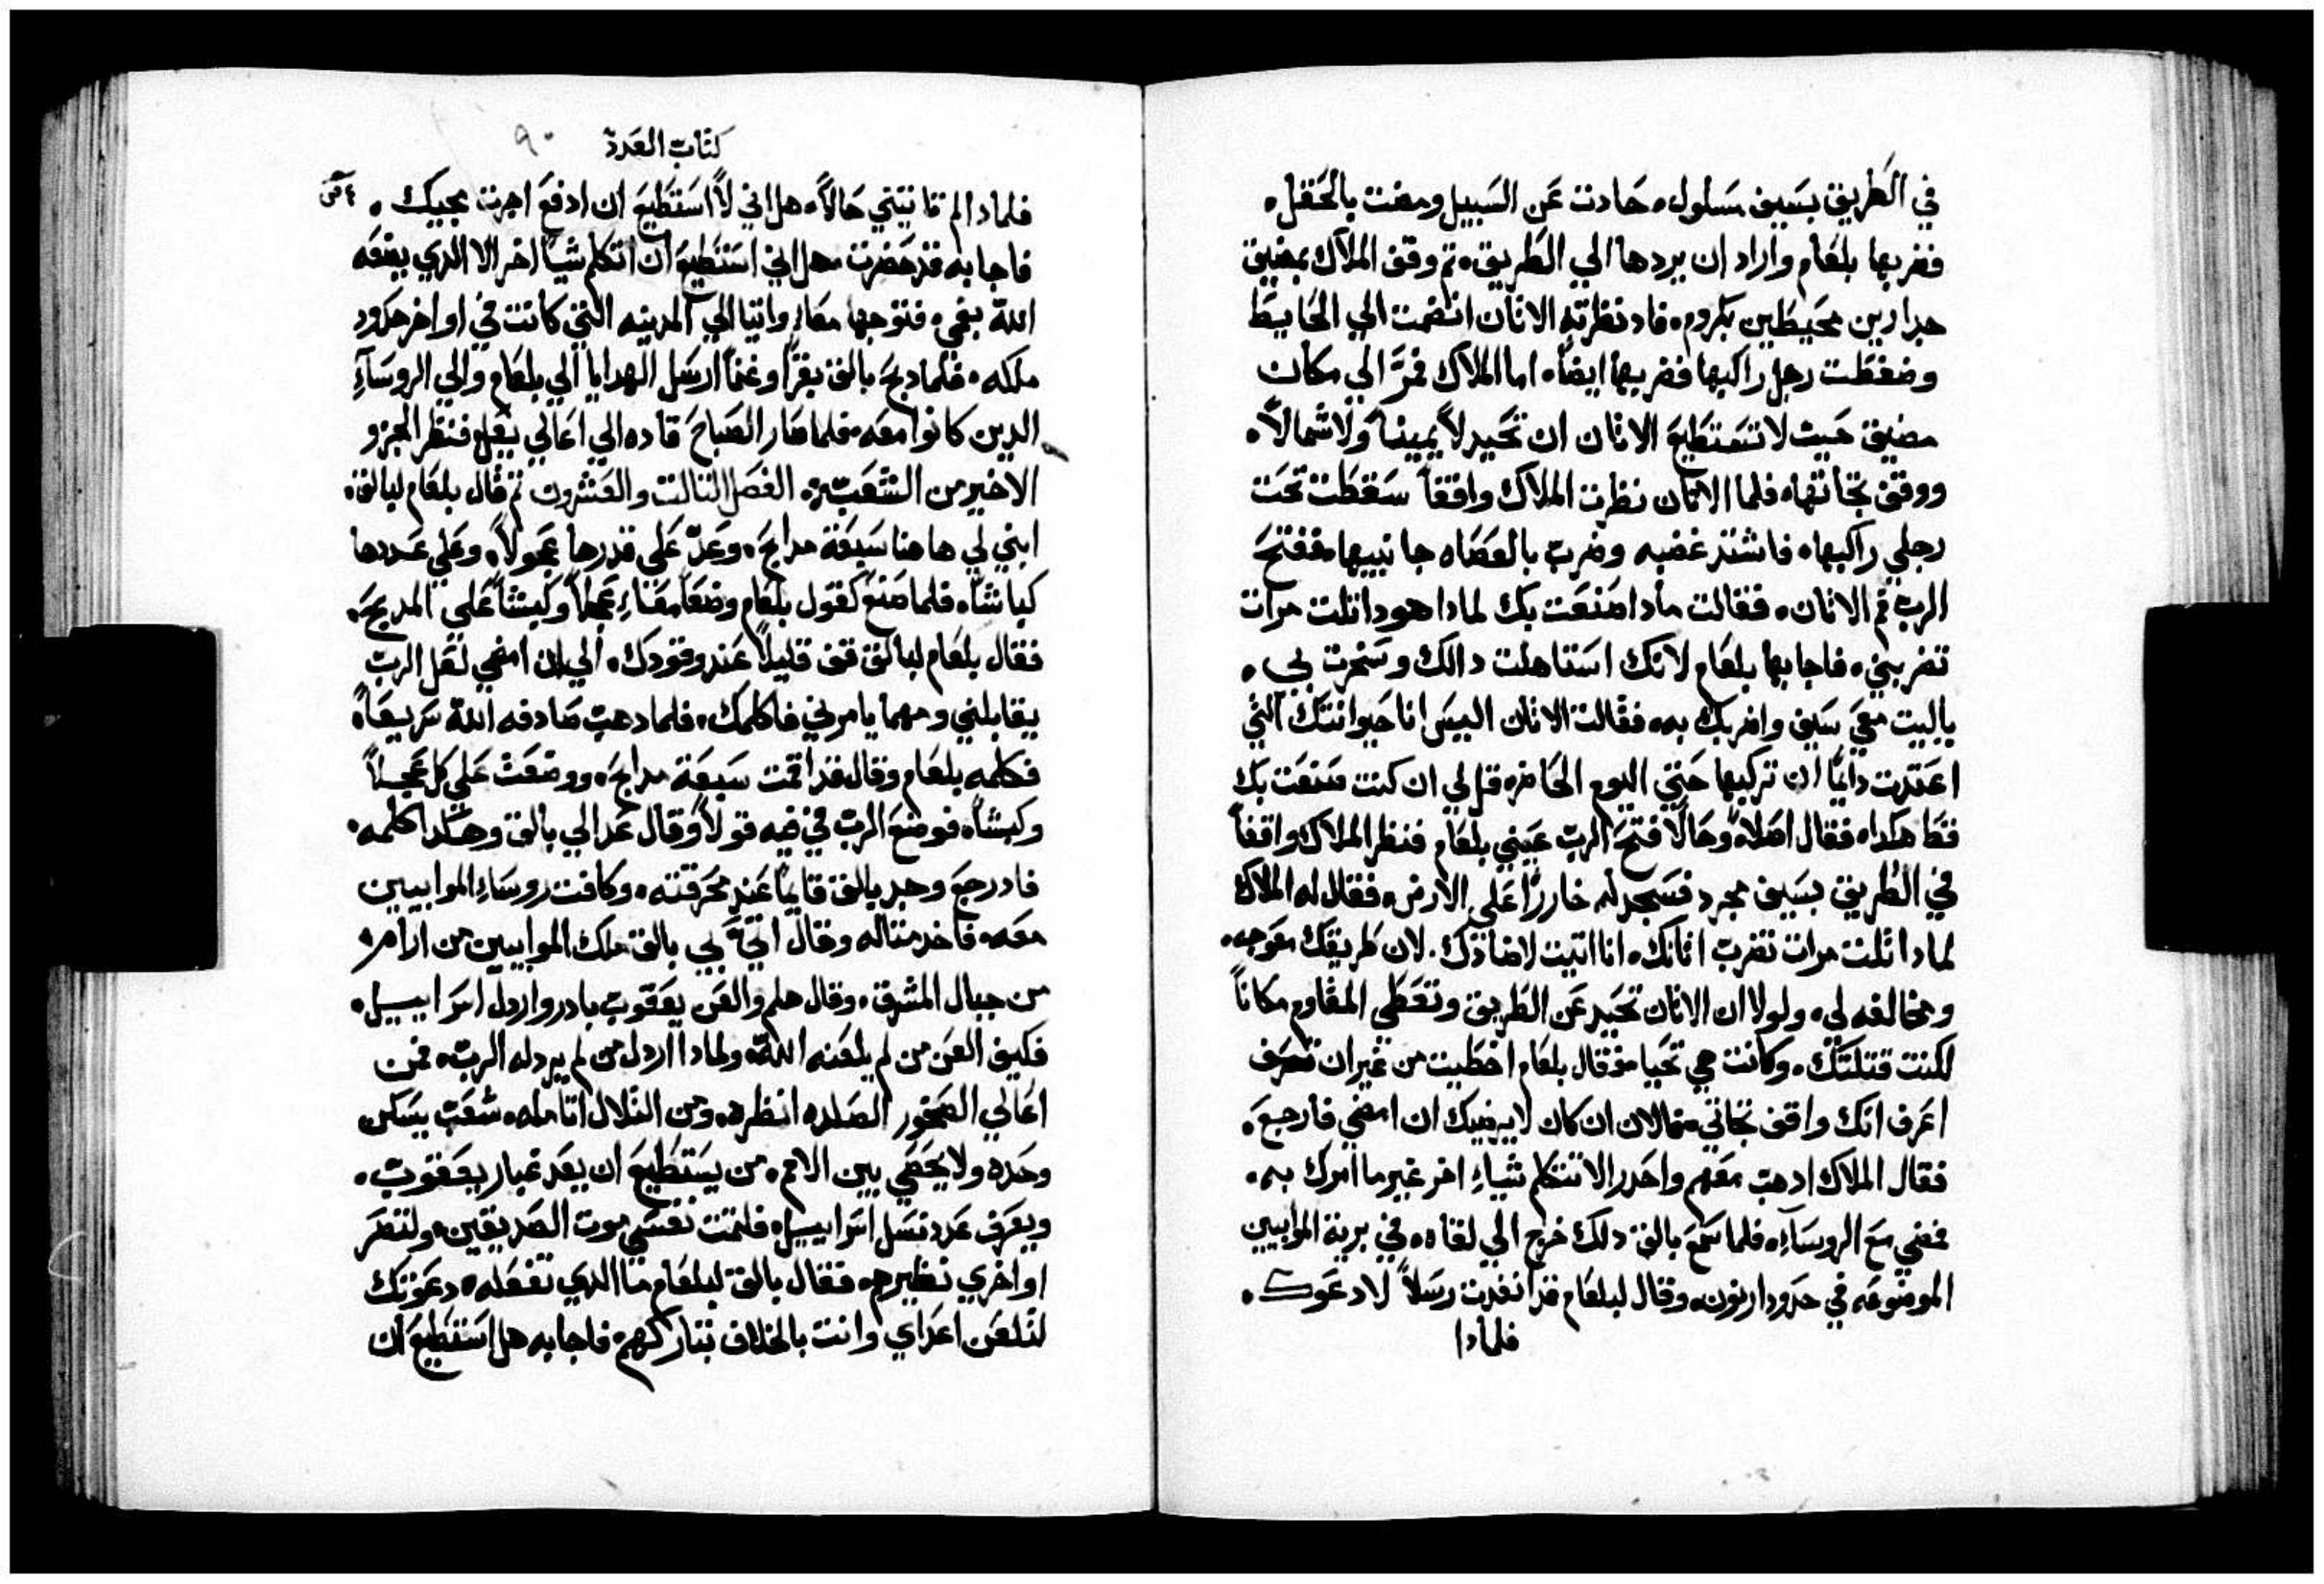 في الطريق بسيف مسلول، حادت عن السبيل ومضت بالحقل،
فضربها بلعام واراد ان يردها الي الطريق، ثم وقف الملاك بمضيق
جدارين محيطين بكروم، فاد نظرته الاتان انضمت الي الحايط
وضغطت رجل راكبها فضربها ايضاً، اما الملاك فمرَّ الي مكان
مضيق حيث لا تستطيع الاتان ان تحيد لا يميناً ولا شمالاً،
ووقف تجاتها، فلما الاتان نظرت الملاك واقفاً سقطت تحت
رجلي راكبها، فاشتد غضبه وضرب بالعصاه جانبيها، ففتح
الرب فم الاتان، فقالت مادا صنعت بك لمادا هودا تلت مرات
تضربني، فاجابها بلعام لانك استاهلت دالك وسخرت بي،
ياليت معي سيف واضربك به، فقالت الاتان اليس انا حيوانتك التي
اعتدت دايماً ان تركبها حتي اليوم الحاضر، قل لي ان كنت صنعت بك
قط هكدا، فقال اصلاً، وحالاً فتح الرب عيني بلعام فنظر الملاك واقفاً
في الطريق بسيف مجرد فسجد له خارراً علي الارض، فقال له الملاك
لمادا تلت مرات تضرب اتانك، انا اتيت لاضادك. لان طريقك معوجه،
ومخالفه لي، ولولا ان الاتان تحيد عن الطريق وتعطي المقاوم مكاناً
لكنت قتلتك، وكانت هي تحيا، فقال بلعام اخطيت من غير ان تعرف
اعرف انك واقف تجاتي، فالان ان كان لا يرضيك ان امضي فارجع،
فقال الملاك ادهب معهم واحدر الا تتكلم شياءِ اخر غير ما امرك به،
فمضي مع الروسآءِ، فلما سمع بالاق دلك خرج الي لقاه، في برية الموابيين
الموضوعه في حدود ارنون، وقال لبلعام قد انفدت رسلاً لادعوك،
فلمادا
كتاب العدد ٩٠
فلمادا لم تاتيني حالاً، هل اني لا استطيع ان ادفع اجرت مجيك،
فاجابه قد حضرت، هل اني استطيع ان اتكلم شياً اخر الا الدي يضعه
الله بفمي، فتوجها معاً، واتيا الي المدينه التي كانت في اواخر حدود
ملكه، فلما دبح بالاق بقراً وغنماً ارسل الهدايا الي بلعام والي الروسآءِ
الدين كانوا معه، فلما صار الصباح قاده الي اعالي بعل، فنظر الجزو
الاخير من الشعب، الفصل التالت والعشرون ثم قال بلعام لبالاق،
ابني لي هاهنا سبعة مدابح، وعدّ علي قدرها عجولاً، وعلي عددها
كباشاً، فلما صنع كقول بلعام وضعا معاً، عجلاً وكبشاً علي المدبح،
فقال بلعام لبالاق قف قليلاً عند وقودك، الي ان امضي لعل الرب
يقابلني ومهما يامرني فاكلمك، فلما دهب صادفه الله سريعاً،
فكلمه بلعام وقال قد اقمت سبعة مدابح، ووضعت علي كل عجلاً
وكبشاً، فوضع الرب في فيه قولاً وقال عد الي بالاق وهكدا كلمه،
فاد رجع وجد بالاق قايماً عند محرقته، وكافت روساءِ الموابيين
معه، فاخد متاله وقال اتيَّ بي بالاق ملك الموابيين من ارام،
من جبال المشرق، وقال هلم والعن يعقوب بادر واردل اسراييل،
فكيف العن من لم يلعنه الله، ولمادا اردل من لم يردله الرب، فمن
اعالي الصخور الصلده انظره، ومن التلال اتامله، شعب يسكن
وحده ولا يحصي بين الامم، من يستطيع ان يعد غبار يعقوب،
ويعرف عدد نسل اسراييل، فلتمت نفسي موت الصديقين، ولتصر
اواخري نظيرهم، فقال بالاق لبلعام ما الدي تفعله، دعوتك
لتلعن اعداي وانت بالخلاف تباركهم، فاجابه هل استطيع ان